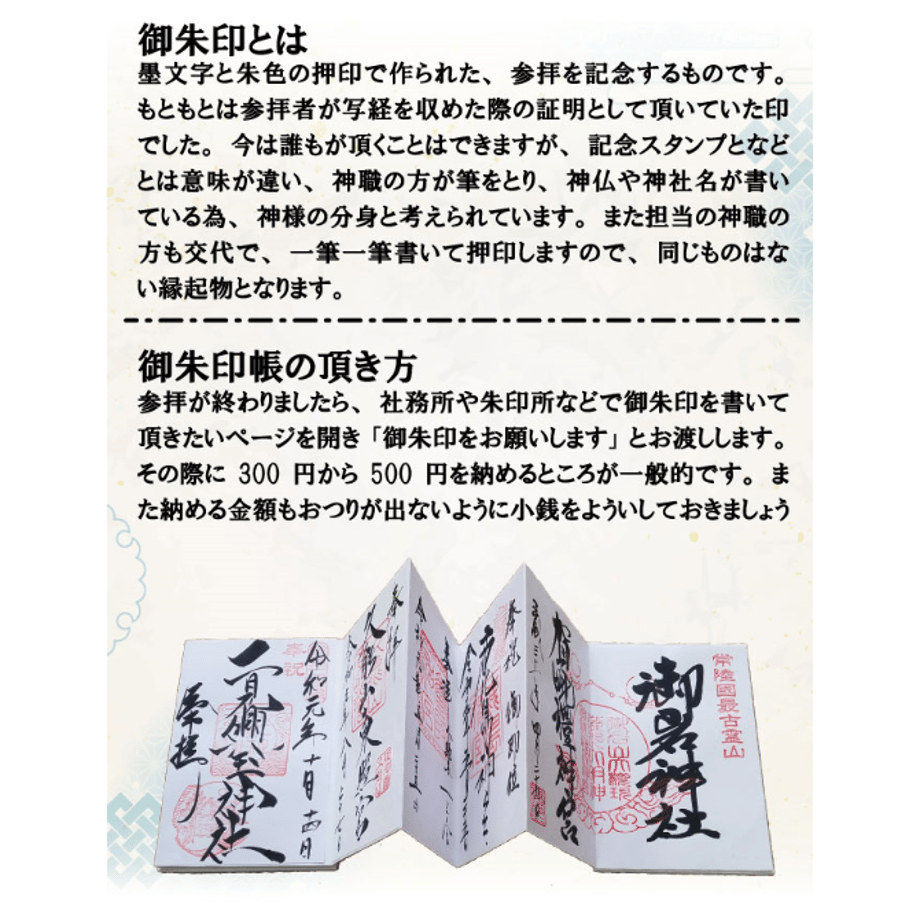 御朱印とは
墨文字と朱色の押印で作られた、参拝を記念するものです。
もともとは参拝者が写経を収めた際の証明として頂いていた印
でした。今は誰もが頂くことはできますが、記念スタンプとなど
とは意味が違い、神職の方が筆をとり、神仏や神社名が書い
ている為、神様の分身と考えられています。また担当の神職の
方も交代で、一筆一筆書いて押印しますので、同じものはな
い縁起物となります。
御朱印帳の頂き方
参拝が終わりましたら、社務所や朱印所などで御朱印を書いて
頂きたいページを開き「御朱印をお願いします」とお渡しします。
その際に 300 円から 500 円を納めるところが一般的です。ま
た納める金額もおつりが出ないように小銭をよういしておきましょう
常陸國最古霊山
御岩神社
奉拝
奉祝
令和元年十月十四日